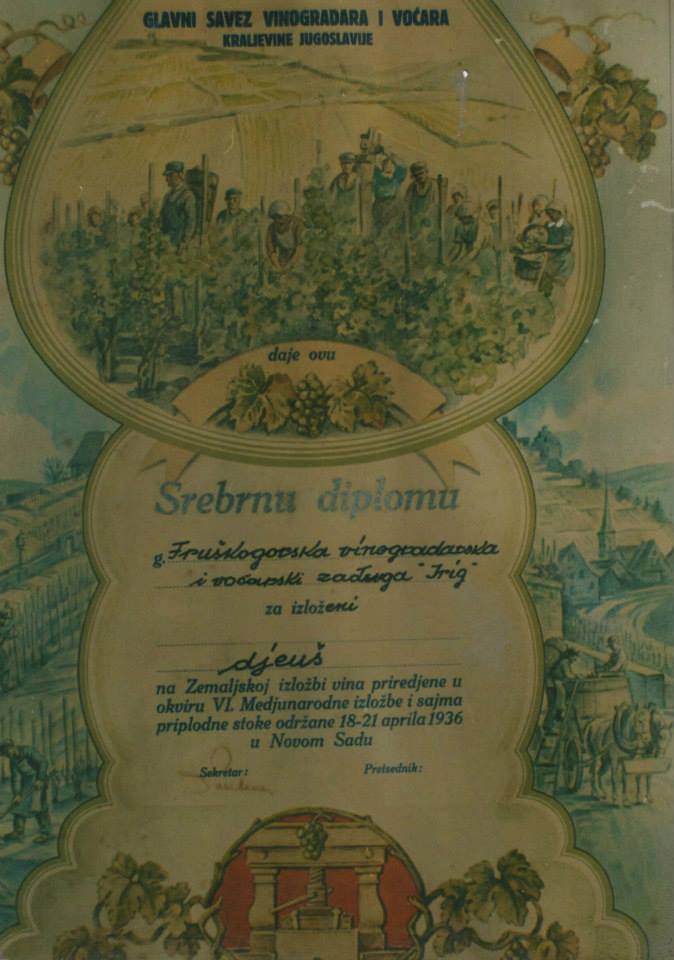 GLAVNI SAVEZ VINOGRADARA I VOĆARA
KRALJEVINE JUGOSLAVIJE
daje ovu
Srebrnu diplomu
g. Fruškogorska vinogradarska
i voćarski zadruga "Irig"
za izloženi
djeuš
na Zemaljskoj izložbi vina priredjene u
okviru VI. Medjunarodne izložbe i sajma
priplodne stoke održane 18-21 aprila 1936
u Novom Sadu
Sekretar: Pretsednik: